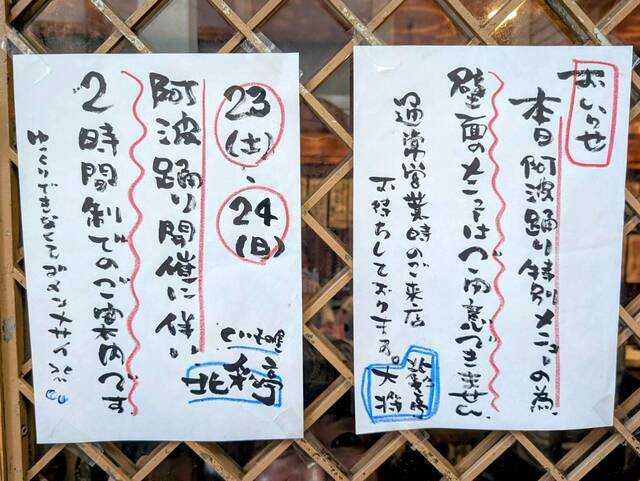 おしらせ
本日阿波踊り特別メニューの為
壁面のメニューはご用意できません
通常営業時のご来店
お待ちしております。
北彩亭
大将
23(土)、24(日)
阿波踊り開催に伴い
2時間制でのご案内です
ゆっくりできなくてゴメンナサイ
北彩亭